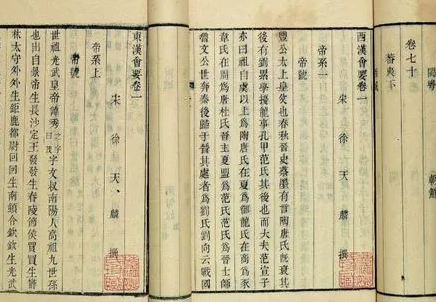 閩粵
朝鮮
卷七十
蕃夷下
西漢會要卷一
宋 徐天麟 撰
帝系一
帝號
豐公太上皇父也春秋晉史蔡墨有言陶唐氏旣衰其
後有劉累學擾龍事孔甲范氏其後也而大夫范宣子
亦曰祖自虞以上爲陶唐氏在夏爲御龍氏在商爲豕
韋氏在周爲唐杜氏晉主夏盟爲范氏范氏爲晉士師
魯文公世奔秦後歸于晉其處者爲劉氏劉向云戰國
東漢會要卷一
宋 徐天麟 撰
帝系上
帝號
世祖光武皇帝諱秀之字曰茂字文叔南陽人高祖九世孫
也出自景帝生長沙定王發發生舂陵侯買買生鬱
林太守外外生鉅鹿都尉回回生南頓令欽欽生光武